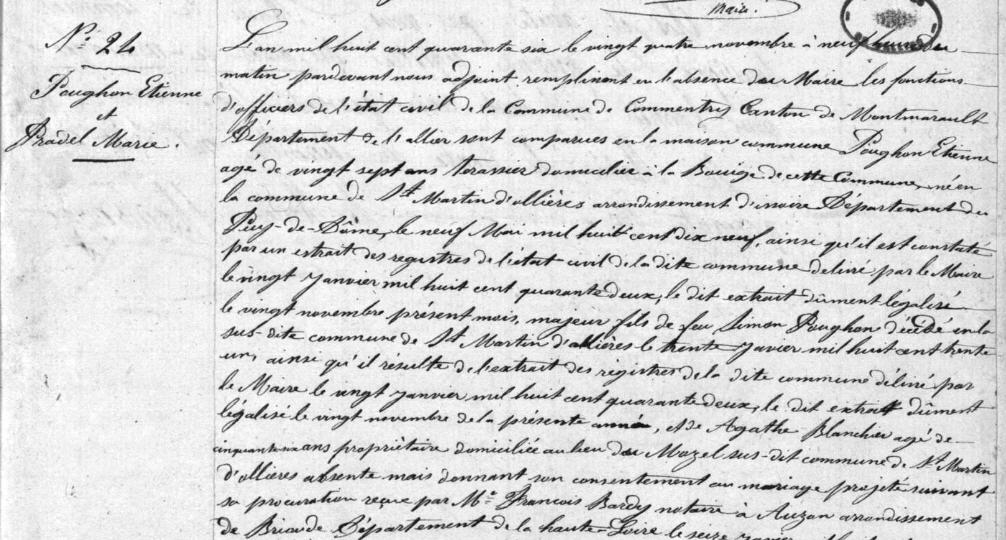 Maire
N.° 24
Poughon Etienne
et
Pradel Marie.
L'an mil huit cent quarante six le vingt quatre novembre à neuf heures du
matin pardevant nous adjoint remplissant en l'absence du Maire les fonctions
d'officiers de l'état civil de la Commune de Commentry Canton de Montmarault
Département de l'allier sont comparus en la maison commune Poughon Etienne
agé de vingt sept ans terassier domicilier à la Bouige de cette Commune, né en
la commune de St Martin d'ollières arrondissement d'issoire Département du
Puy-de-Dôme, le neuf Mai mil huit cent dix neuf, ainsi qu'il est constaté
par un extrait des registres de l'état civil de la dite commune délivré par le Maire
le vingt Janvier mil huit cent quarante deux, le dit extrait dûment légalisé
le vingt novembre présent mois, majeur fils de feu Simon Poughon décédé en la
sus-dite commune de St Martin d'ollières le trente Janvier mil huit cent trente
un, ainsi qu'il résulte de l'extrait des registres de la dite commune délivré par
le Maire le vingt Janvier mil huit cent quarante deux, le dit extrait dûment
légalisé le vingt novembre de la présente année, et de Agathe Blanchier agé de
ans propriétaire domiciliée au lieu du Mazel sus-dit commune de St Martin
d'ollières absente mais donnant son consentement au mariage projeté suivant
sa procuration reçue par Me François Bardy notaire à Auzon arrondissement
de Brioude Département de la haute-Loire le seize